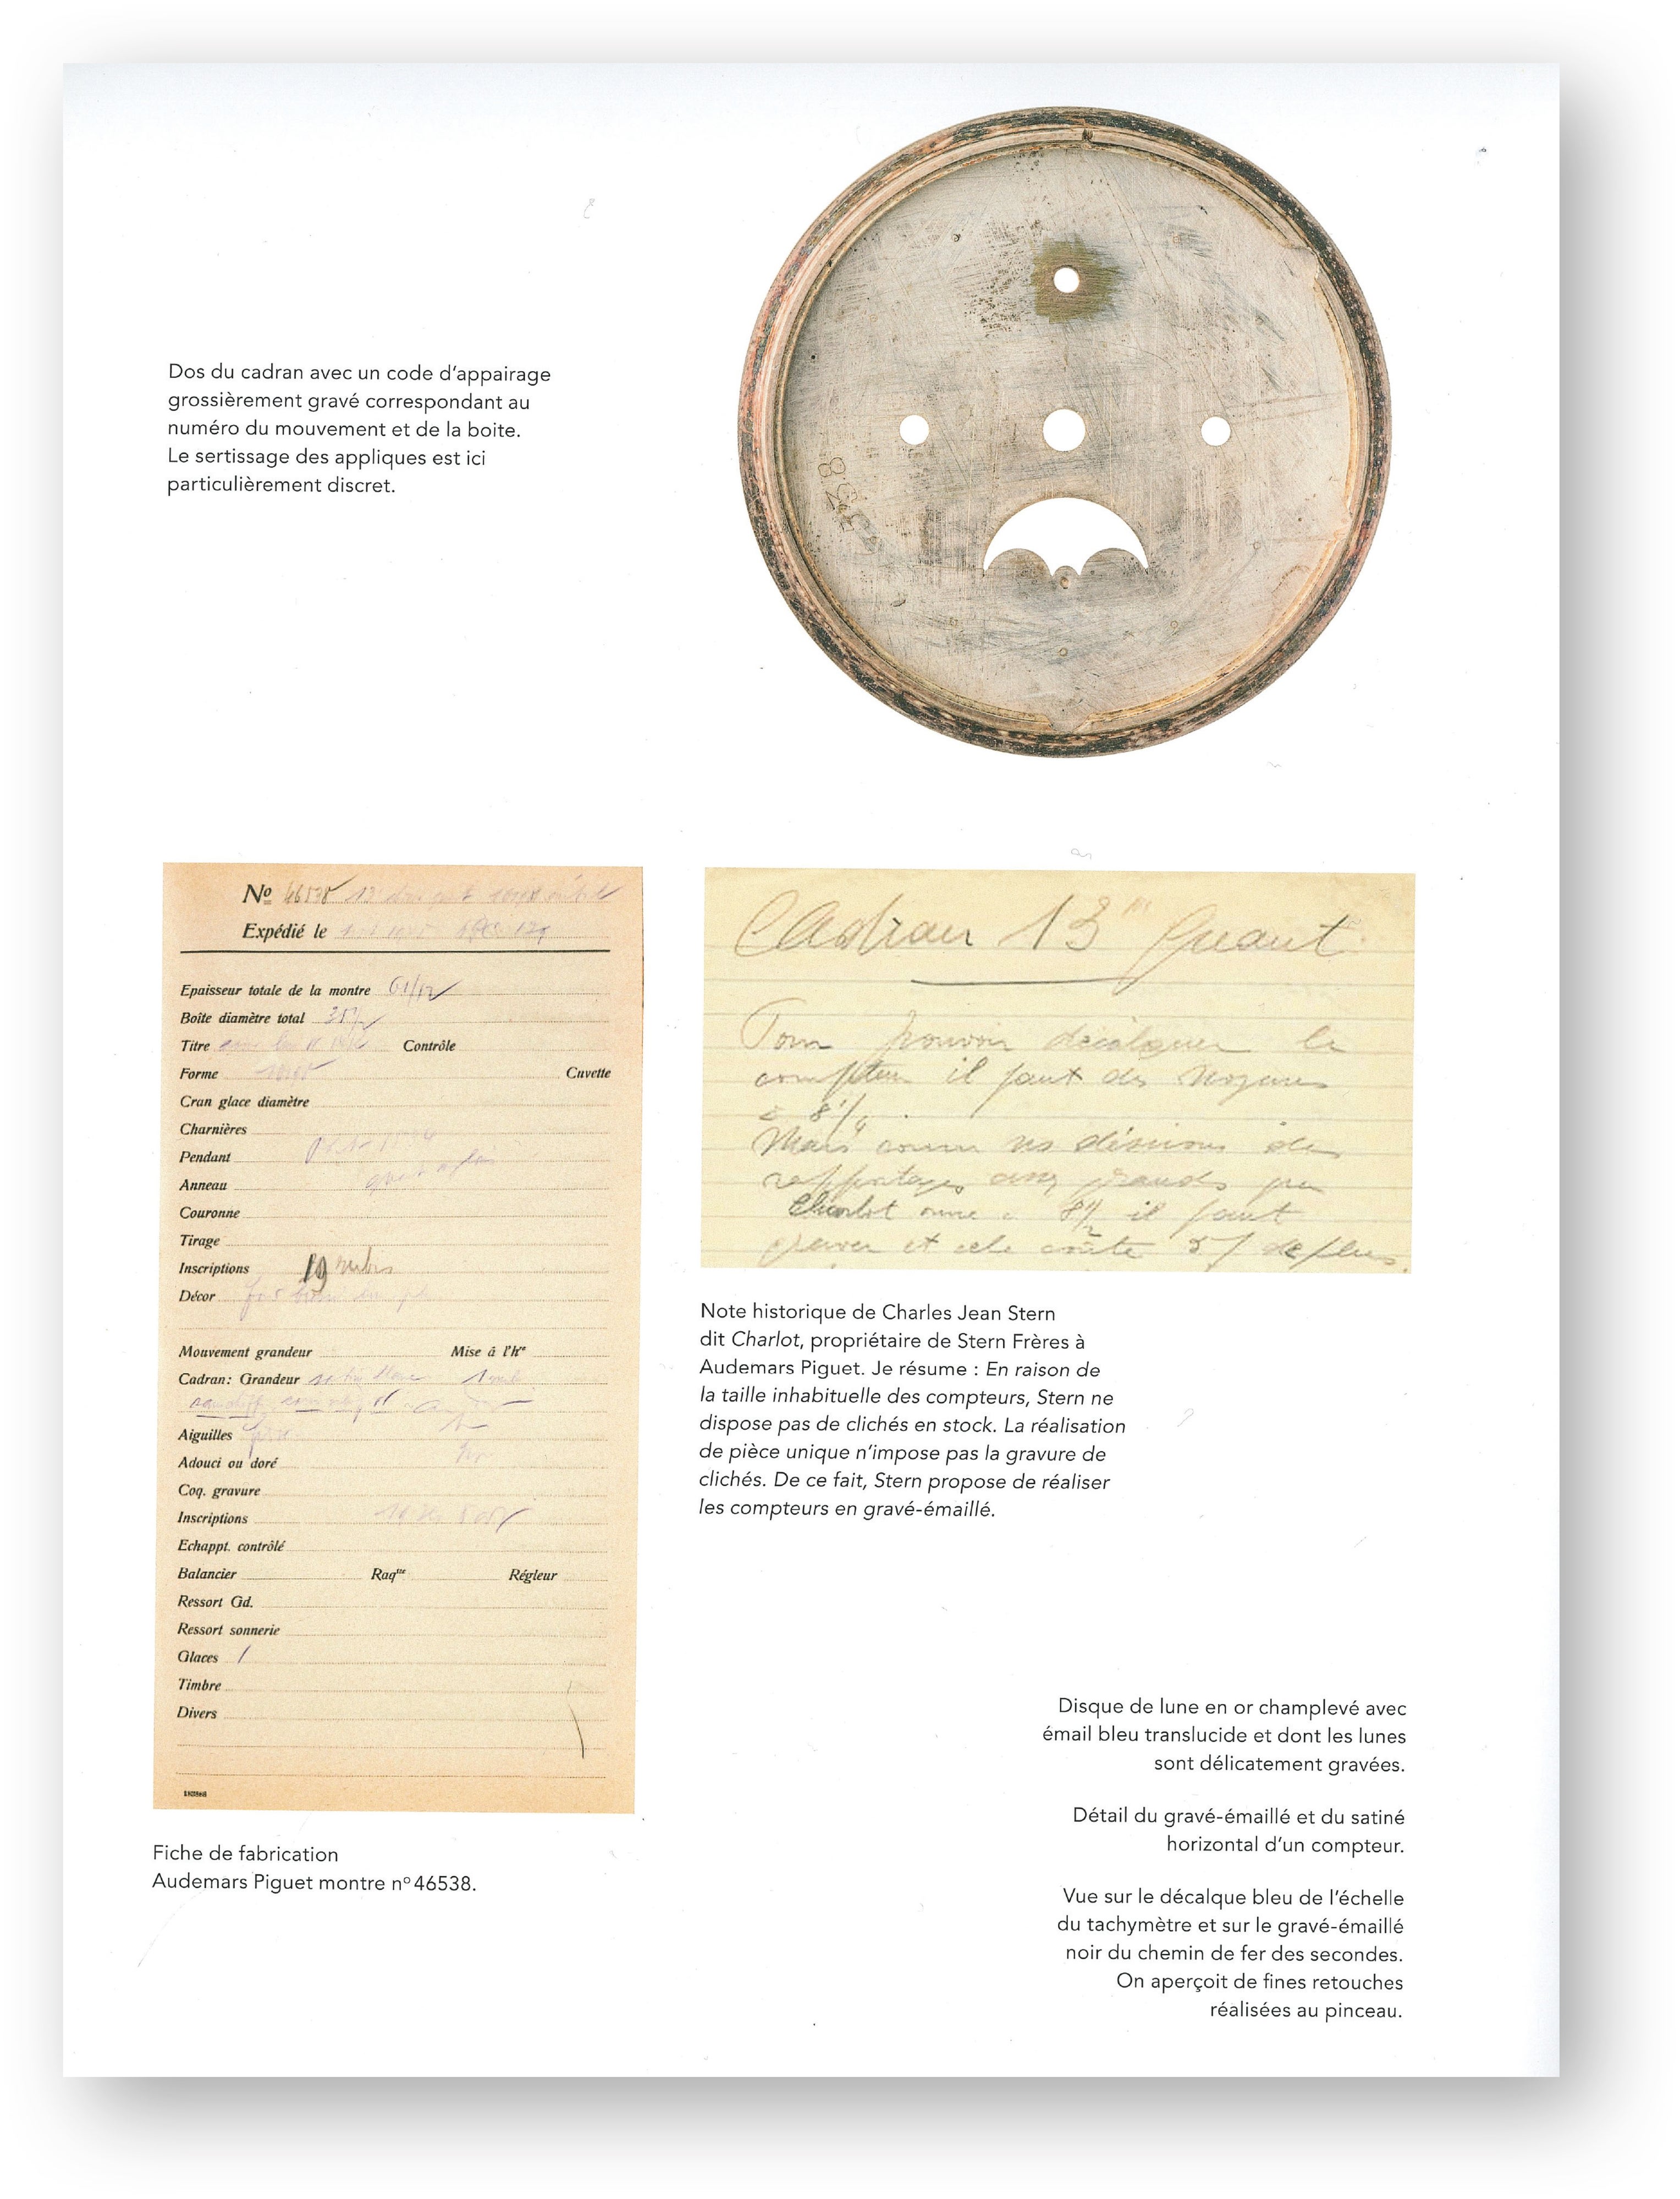 Dos du cadran avec un code d'appairage
grossièrement gravé correspondant au
numéro du mouvement et de la boite.
Le sertissage des appliques est ici
particulièrement discret.
Nº 46538 13
Expédié le
Epaisseur totale de la montre 61/12
Boîte diamètre total 35
Titre Contrôle
Forme Cuvette
Cran glace diamètre
Charnières
Pendant
Anneau
Couronne
Tirage
Inscriptions 19 rubis
Décor
Mouvement grandeur Mise à l'hre
Cadran: Grandeur
Aiguilles
Adouci ou doré
Coq. gravure
Inscriptions
Echappt. contrôlé
Balancier Raqtte Régleur
Ressort Gd.
Ressort sonnerie
Glaces
Timbre
Divers
Fiche de fabrication
Audemars Piguet montre nº 46538.
Cadran 13''' Quant
Pour pouvoir décalquer le
il faut des
8 1/4
Mais des
grands que
Charlot 8 1/2 il faut
graver et cela coûte de plus.
Note historique de Charles Jean Stern
dit Charlot, propriétaire de Stern Frères à
Audemars Piguet. Je résume : En raison de
la taille inhabituelle des compteurs, Stern ne
dispose pas de clichés en stock. La réalisation
de pièce unique n'impose pas la gravure de
clichés. De ce fait, Stern propose de réaliser
les compteurs en gravé-émaillé.
Disque de lune en or champlevé avec
émail bleu translucide et dont les lunes
sont délicatement gravées.
Détail du gravé-émaillé et du satiné
horizontal d'un compteur.
Vue sur le décalque bleu de l'échelle
du tachymètre et sur le gravé-émaillé
noir du chemin de fer des secondes.
On aperçoit de fines retouches
réalisées au pinceau.